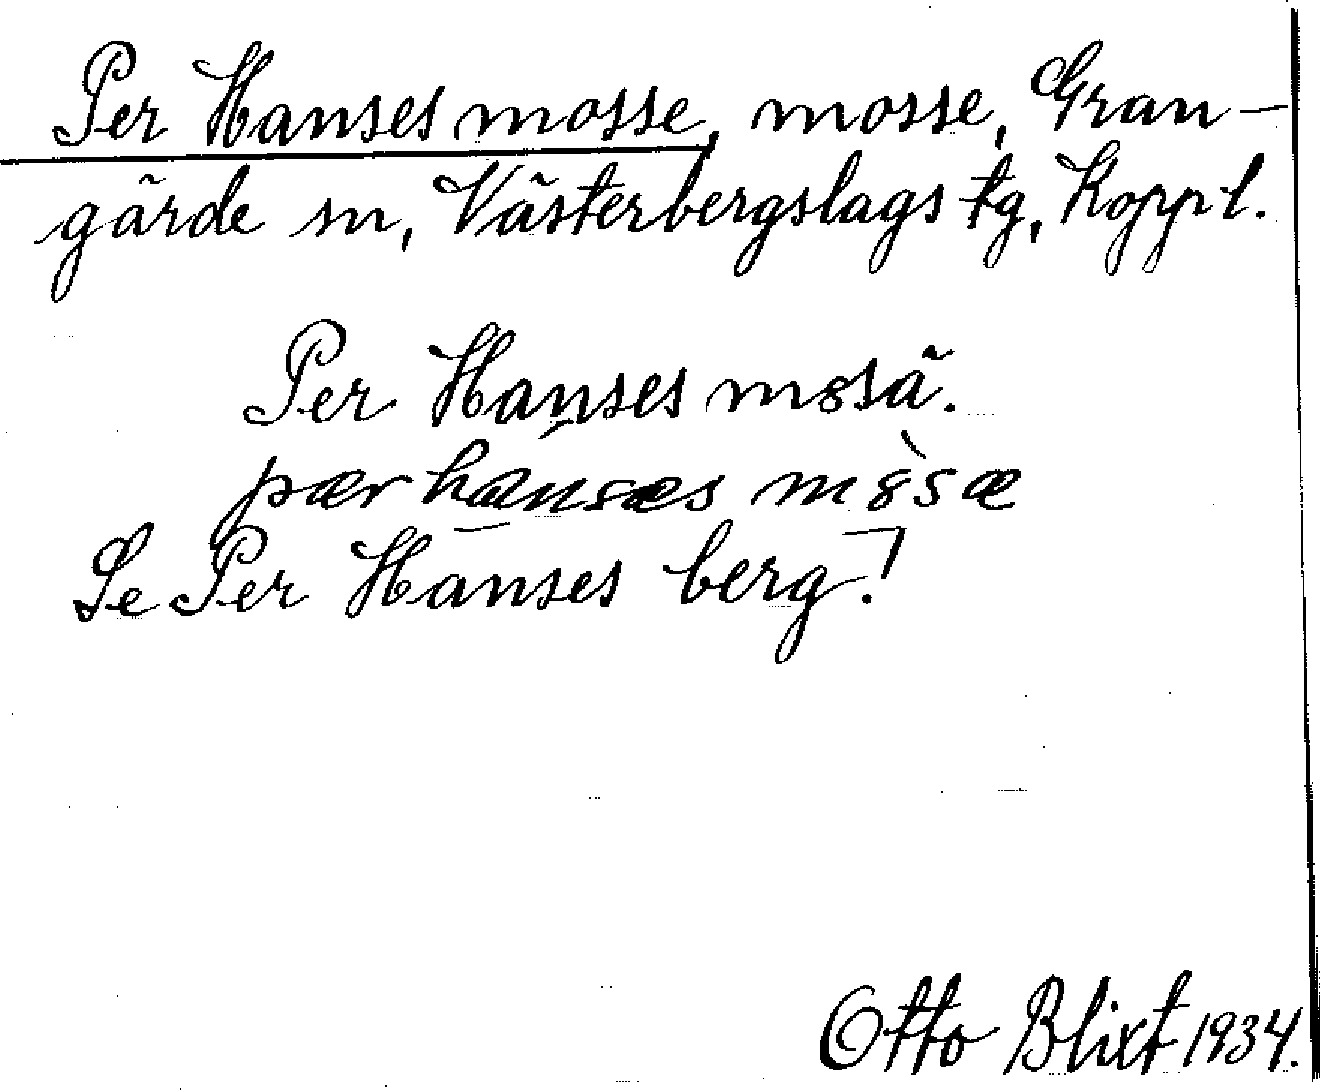 Per Hanses mosse, mosse, Gran-
gärde sn, Västerbergslags tg, Kopp. l.
Per Hanses m8sä.
pær hánsæs m8̀sæ
Se Per Hanses berg!
Otto Blixt 1934.